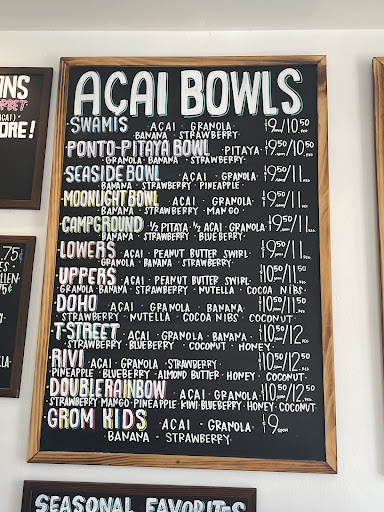 ACAI BOWLS
·SWAMIS ACAI · GRANOLA· $9/10.50
BANANA · STRAWBERRY
PONTO-PITAYA BOWL ·PITAYA· $9.50/10.50
·GRANOLA· BANANA · STRAWBERRY·
SEASIDE BOWL · ACAI · GRANOLA· $9.50/11
BANANA · STRAWBERRY · PINEAPPLE·
MOONLIGHT BOWL · ACAI · GRANOLA· $9.50/11
BANANA · STRAWBERRY · MANGO·
CAMPGROUND ½ PITAYA · ½ ACAI · GRANOLA· $9.50/11
BANANA · STRAWBERRY · BLUEBERRY
·LOWERS ·ACAI · PEANUT BUTTER SWIRL· $9.50/11
GRANOLA · BANANA · STRAWBERRY·
·UPPERS · ACAI · PEANUT BUTTER SWIRL· $10/11.50
GRANOLA· BANANA · STRAWBERRY · NUTELLA · COCOA NIBS·
·DOHO · ACAI · GRANOLA · BANANA $10.50/11.50
STRAWBERRY · NUTELLA · COCOA NIBS · COCONUT·
·T-STREET ·ACAI · GRANOLA · BANANA · $10.50/12
STRAWBERRY · BLUEBERRY · COCONUT · HONEY·
·RIVI · ACAI · GRANOLA · STRAWBERRY· $10.50/12.50
·PINEAPPLE · BLUEBERRY · ALMOND BUTTER · HONEY · COCONUT·
DOUBLE RAINBOW · ACAI · GRANOLA· $10.50/12.50
·STRAWBERRY· MANGO· PINEAPPLE· KIWI· BLUEBERRY· HONEY· COCONUT
·GROM KIDS · ACAI · GRANOLA· $9
BANANA · STRAWBERRY·
SEASONAL FAVORITES
ORE!